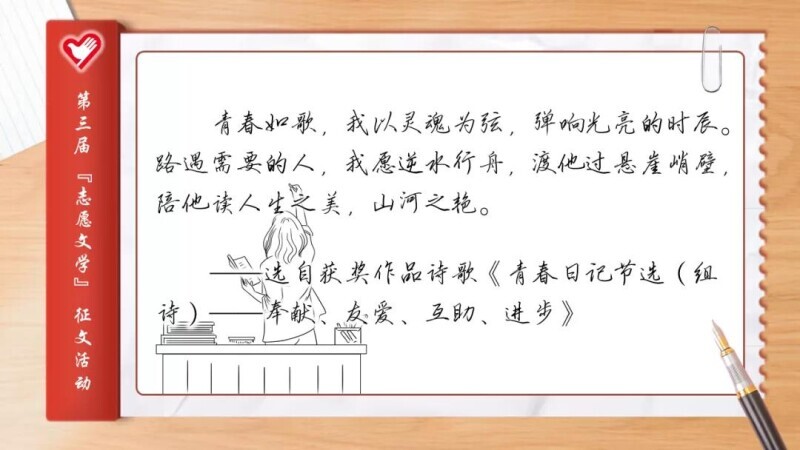 第三届『志愿文学』征文活动
青春如歌，我以灵魂为弦，弹响光亮的时辰。
路遇需要的人，我愿逆水行舟，渡他过悬崖峭壁，
陪他读人生之美，山河之艳。
——选自获奖作品诗歌《青春日记节选（组
诗）——奉献、友爱、互助、进步》